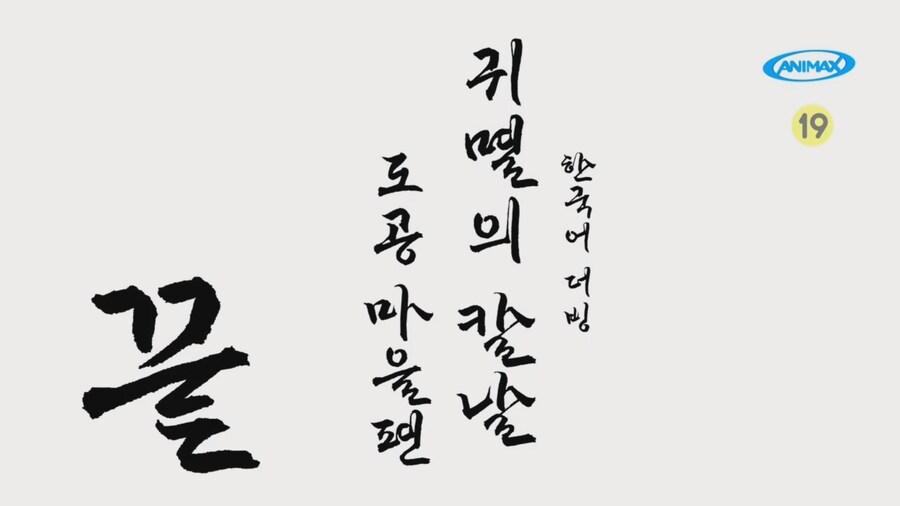 한국어 더빙
귀멸의 칼날
도공 마을편
끝
ANIMAX
19